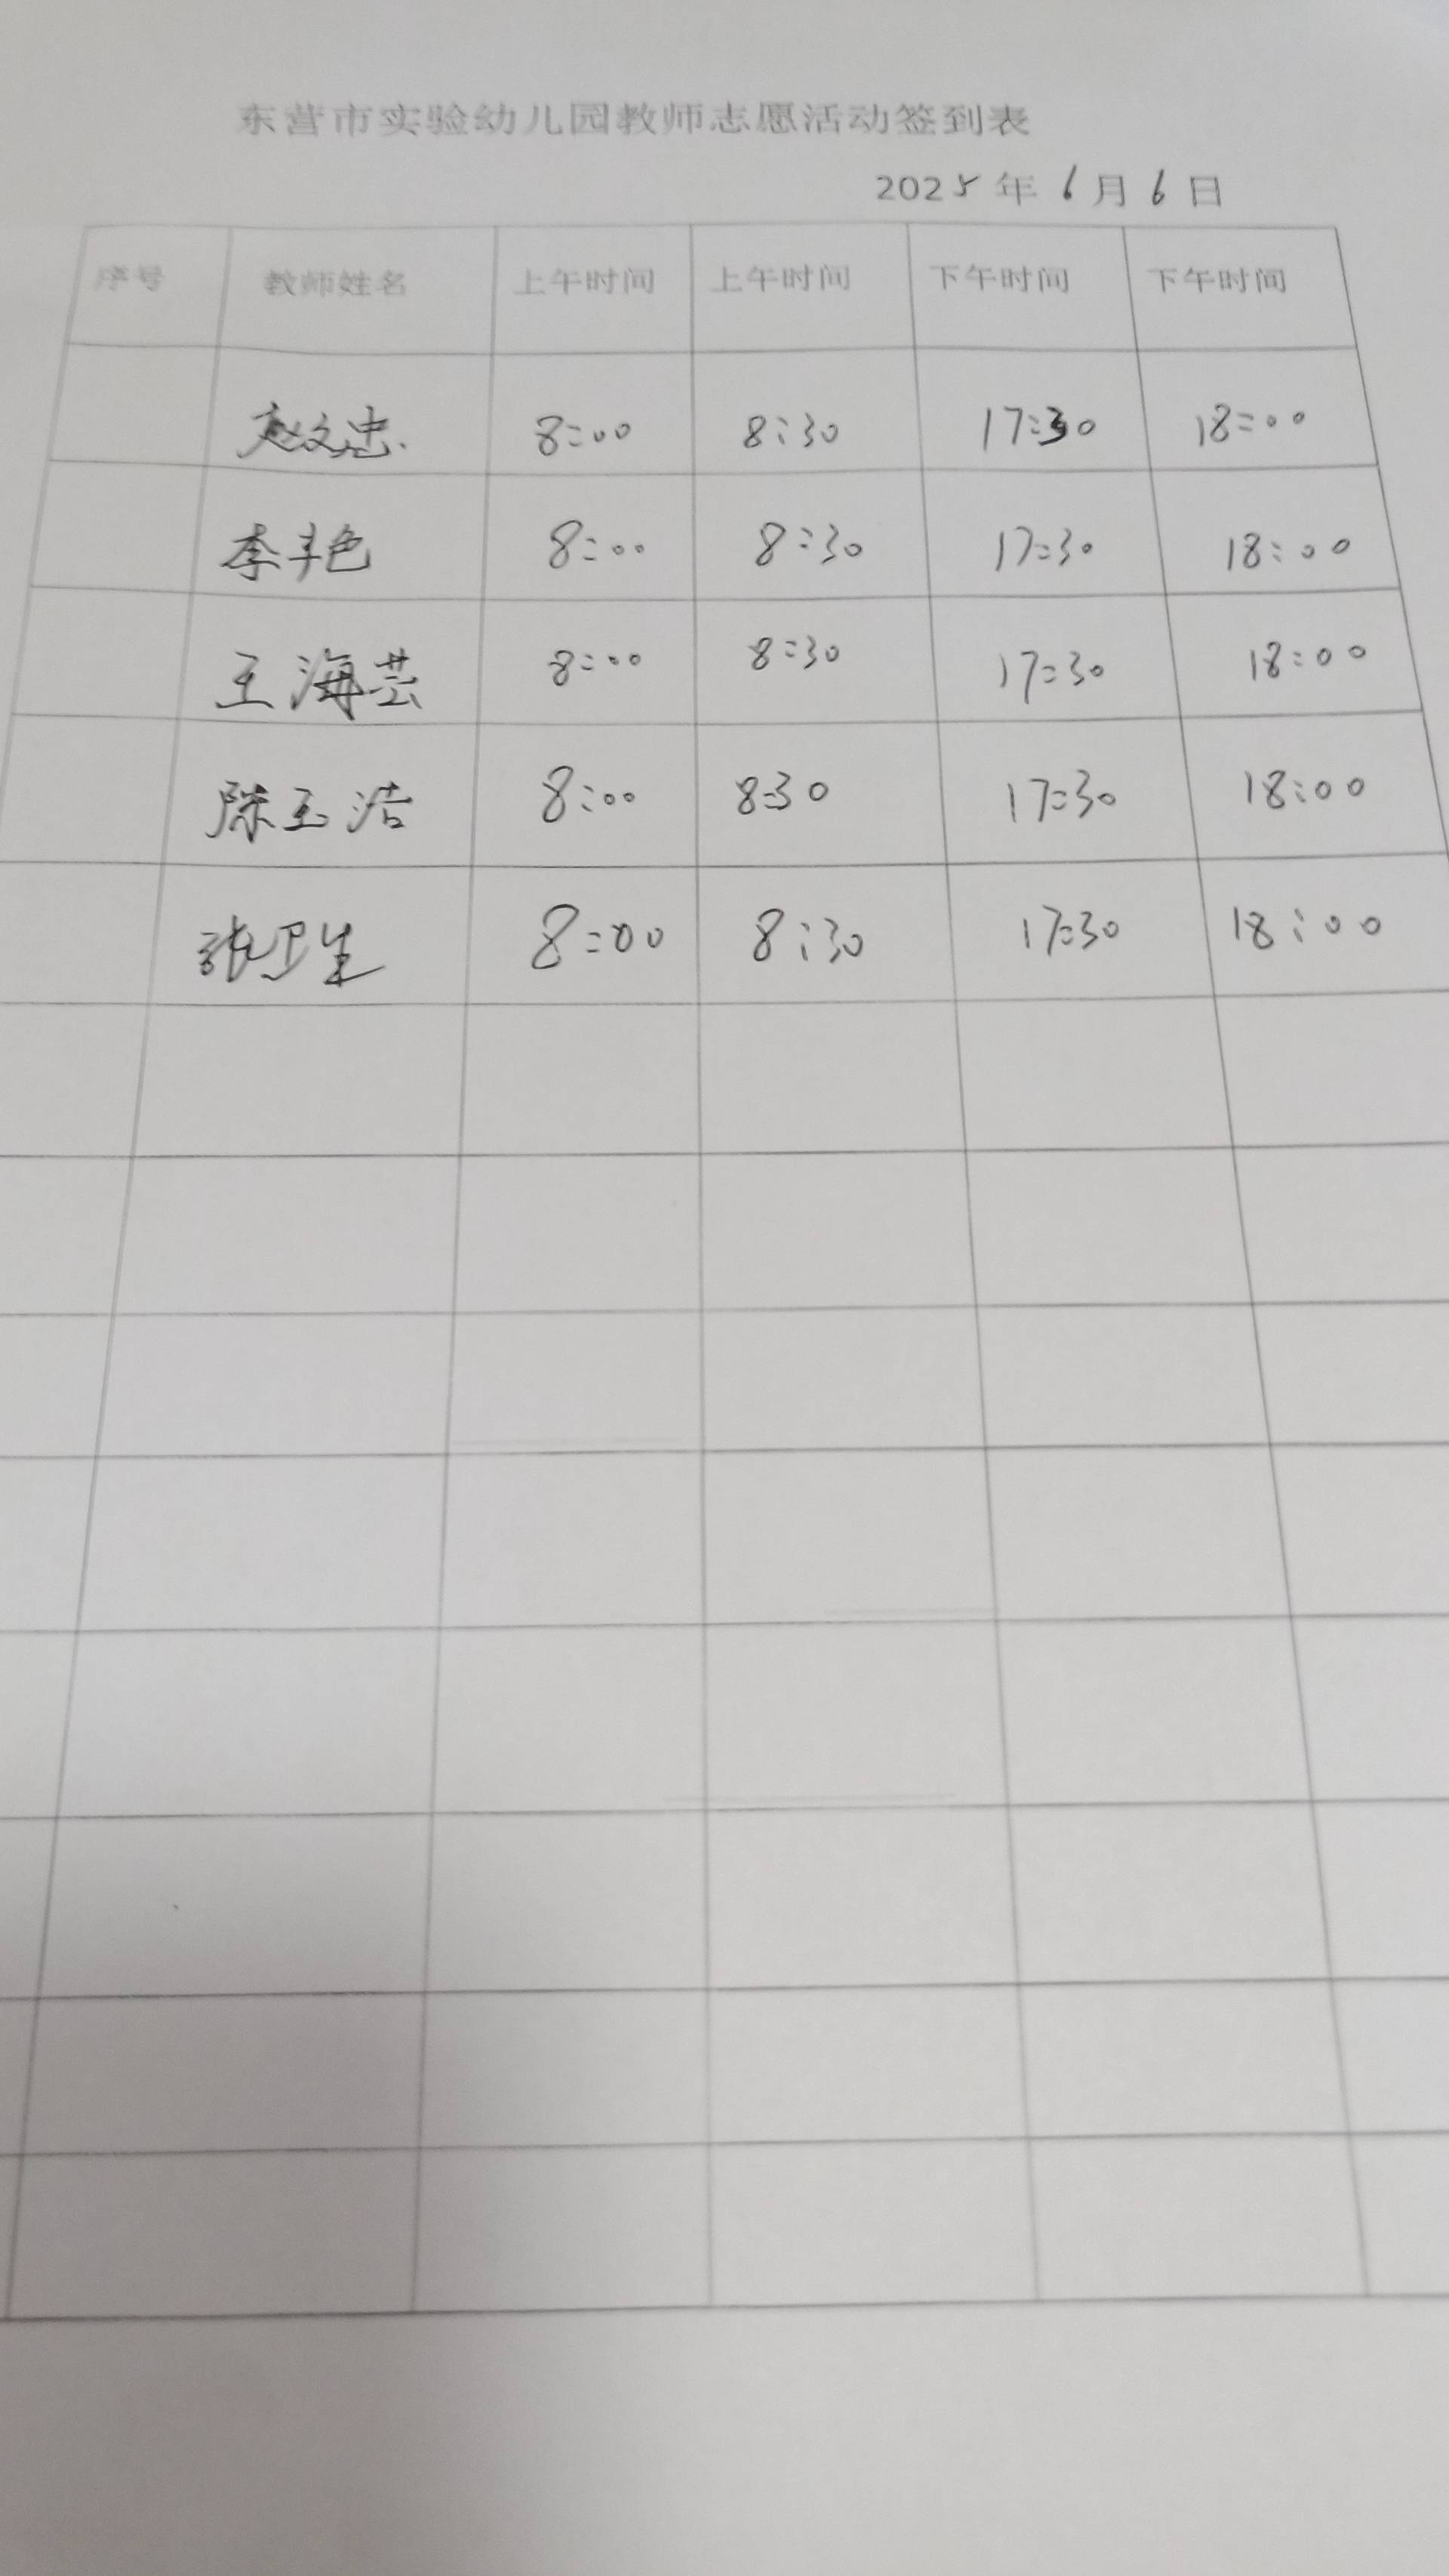 东营市实验幼儿园教师志愿活动签到表
2025年6月6日
序号 教师姓名 上午时间 上午时间 下午时间 下午时间
赵文忠. 8:00 8:30 17:30 18:00
李丰色 8:00 8:30 17:30 18:00
王海芸 8:00 8:30 17:30 18:00
陈玉洁 8:00 8:30 17:30 18:00
张卫生 8:00 8:30 17:30 18:00